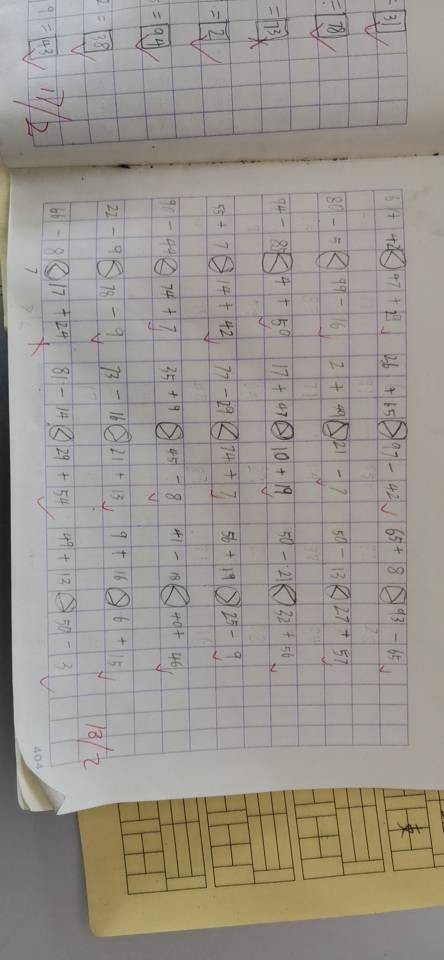 = 31
= 78
= 73
= 2
5 = 94
2 = 38
9 = 43
17/2
+ 42 > 47 + 28 26 + 65 > 97 - 42 65 + 8 > 93 - 65
80 - 5 < 99 - 16 2 + 49 > 21 - 7 50 - 13 < 27 + 57
94 - 85 < 4 + 50 17 + 47 > 10 + 19 50 - 21 < 32 + 56
55 + 7 > 14 + 42 77 - 29 < 74 + 7 56 + 19 > 25 - 9
90 - 44 < 74 + 7 35 + 9 > 45 - 8 41 - 18 < 40 + 46
22 - 9 < 78 - 9 73 - 16 > 21 + 13 9 + 16 > 6 + 15
66 - 8 < 17 + 24 81 - 14 < 29 + 54 49 + 13 > 50 - 3
18/2